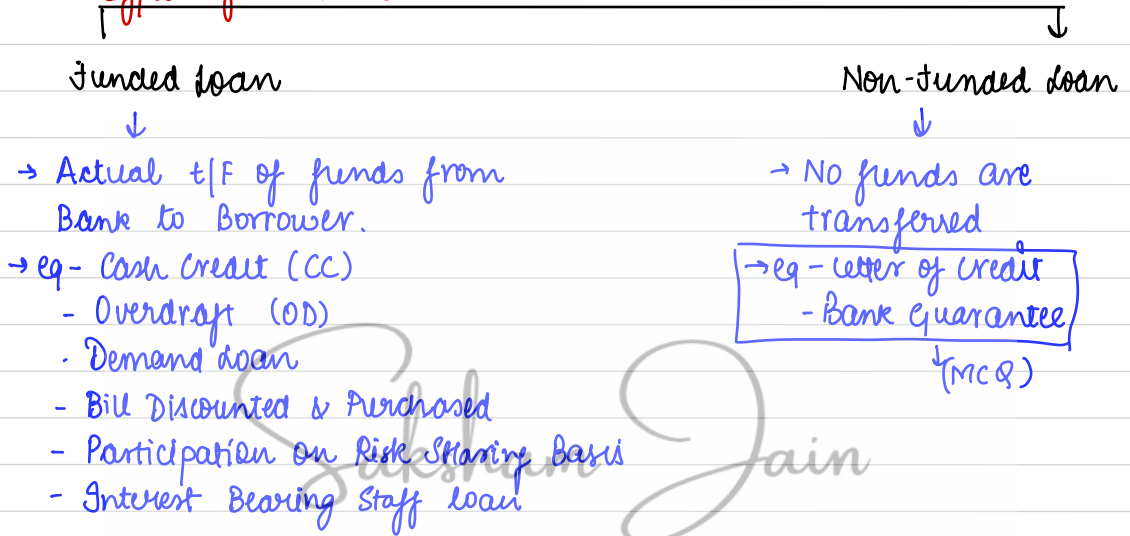 Funded Loan
Non-Funded Loan
→ Actual t/F of funds from
Bank to Borrower.
→ eg - Cash Credit (CC)
- Overdraft (OD)
. Demand Loan
- Bill Discounted & Purchased
- Participation on Risk Sharing Basis
- Interest Bearing Staff loan
→ No funds are
transferred
→ eg - Letter of Credit
- Bank Guarantee
(MCQ)
Saksham Jain